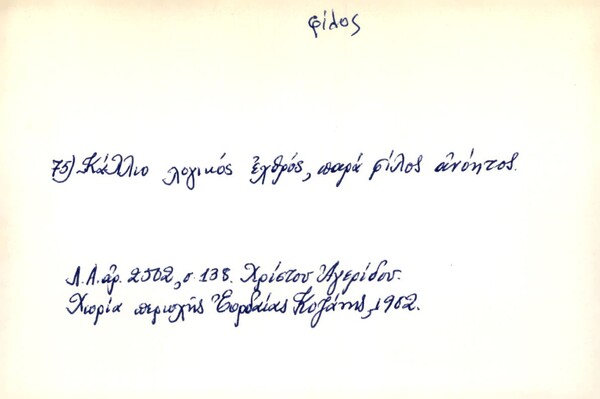 φίλος
75) Κάλλιο λογικός ἐχθρός, παρά φίλος ἀνόητος.
Λ.Α. ἀρ. 2502, σ. 138. Χρίστου Ἀγερίδου.
Χωρία περιοχῆς Ἐορδαίας Κοζάνης, 1962.